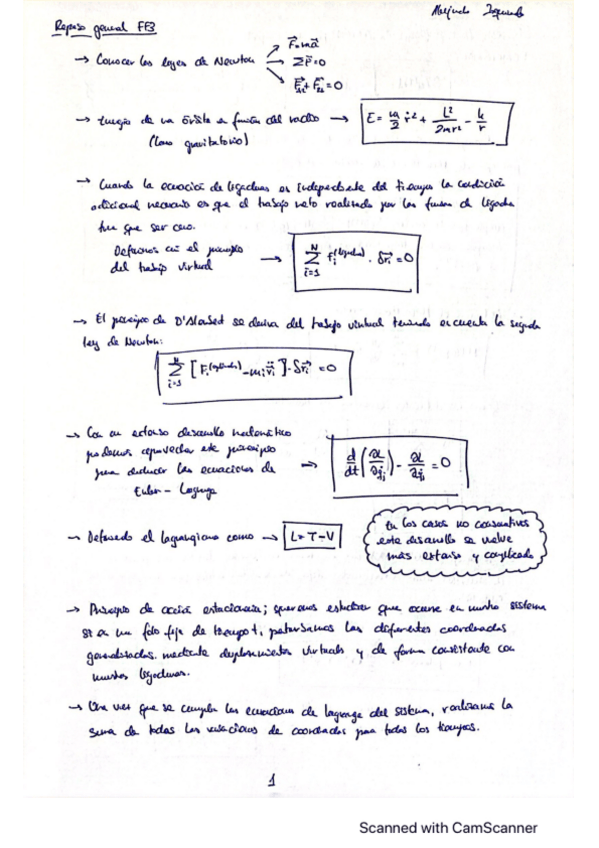 Repaso general FF3
→ Conocer las leyes de Newton
F=ma
ΣF=0
F₁₂+F₂₁=0
→ Energía de una órbita en función del radio → E = m/2 ṙ² + L²/2mr² - k/r
(Caso gravitatorio)
→ Cuando la ecuación de ligaduras es independiente del tiempo la condición
adicional necesaria es que el trabajo neto realizado por las fuerzas de ligadura
tiene que ser cero.
Definimos así el principio
del trabajo virtual → Σ_{i=1}^{N} f_i^(ligadura) · δr_i = 0
→ El principio de D'Alambert se deriva del trabajo virtual teniendo en cuenta la segunda
ley de Newton:
Σ_{i=1}^{N} [F_i - m_i r̈_i] · δr_i = 0
→ Con un extenso desarrollo matemático
podemos aprovechar este principio
para deducir las ecuaciones de
Euler - Lagrange
→ Definiendo el lagrangiano como → L = T - V
En los casos no conservativos
este desarrollo se vuelve
más extenso y complicado
→ Principio de acción estacionaria; queremos estudiar que ocurre en nuestro sistema
si a un tiempo t, perturbamos las diferentes coordenadas
generalizadas mediante desplazamientos virtuales y de forma consistente con
nuestras ligaduras.
→ Una vez que se cumplen las ecuaciones de lagrange del sistema, realizamos la
suma de todas las variaciones de coordenadas para todos los tiempos.
1
Scanned with CamScanner